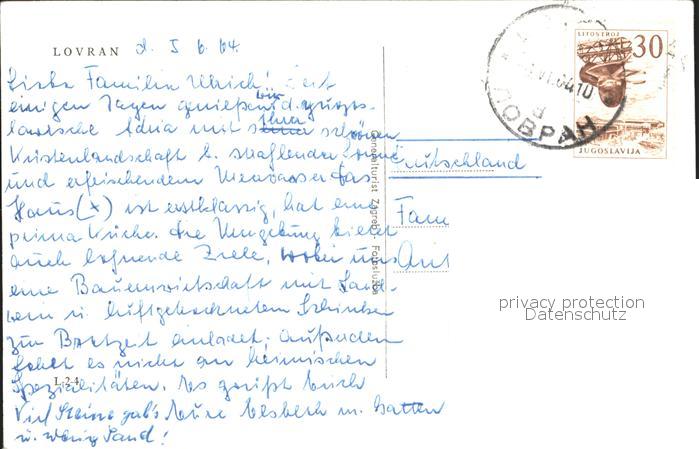 LOVRAN d. 5 6. 64.
Liebe Familie Ulrich! Seit
einigen Tagen genießen wir d. jugos-
lawische Adria mit ihrer schönen
Küstenlandschaft b. strahlender Sonne
und erfrischendem Meerwasser. Das
Haus (x) ist erstklassig, hat eine
prima Küche. Die Umgebung bietet
auch lohnende Ziele, wobei uns
eine Bauernwirtschaft mit Land-
wein u. luftgetrocknetem Schinken
zur Brotzeit einladet; außerdem
fehlt es nicht an heimischen
Spezialitäten. Es grüßt Euch
Viel Steine gab's Eure Elsbeth m. Gatten
u. wenig Sand!
Deutschland
Fam
L 24
Generalturist Zagreb Fotoslužba
LITOSTROJ
30
JUGOSLAVIJA
ЛОВРАН
privacy protection
Datenschutz